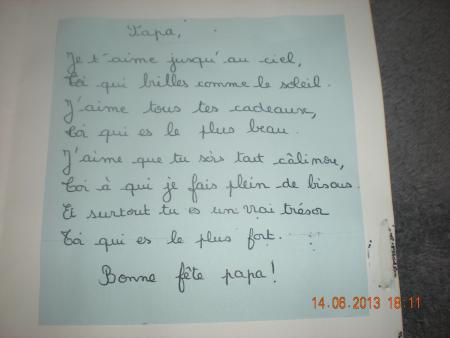 Papa,
Je t'aime jusqu'au ciel,
Toi qui brilles comme le soleil.
J'aime tous tes cadeaux,
Toi qui es le plus beau.
J'aime que tu sois tout câlinou,
Toi à qui je fais plein de bisous.
Et surtout tu es un vrai trésor
Toi qui es le plus fort.
Bonne fête papa!
14.06.2013 18:11